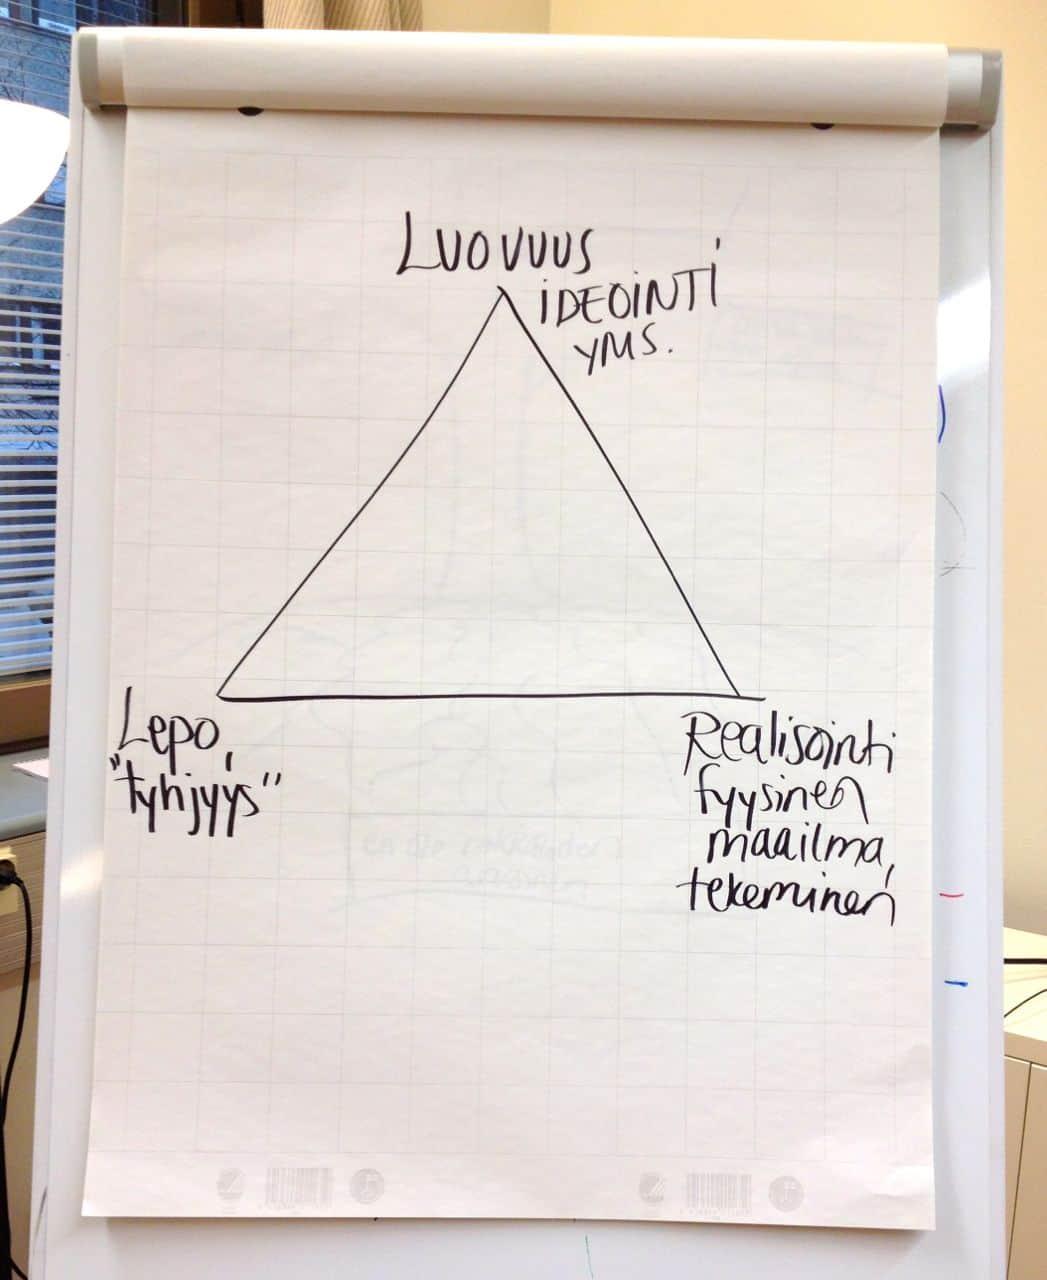 LUOVUUS
iDEOiNTi
YMS.
Lepo,
"tyhjyys"
Realisointi
fyysinen
maailma,
tekeminen